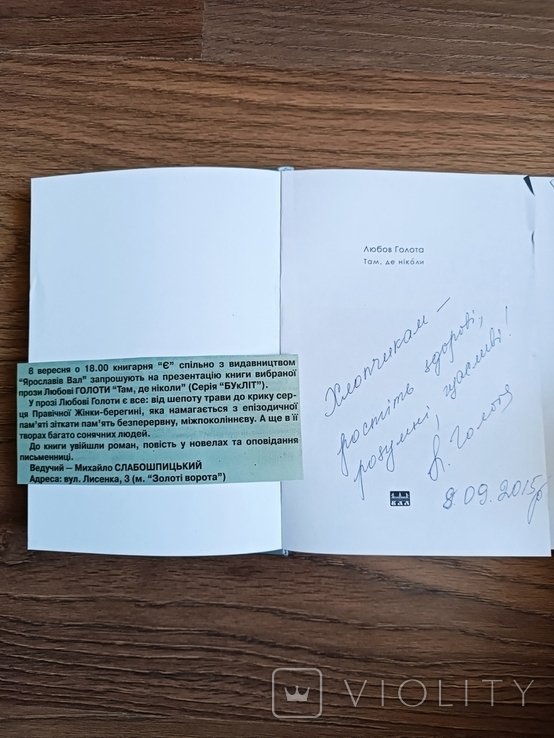 8 вересня о 18.00 книгарня "Є" спільно з видавництвом
"Ярославів Вал" запрошують на презентацію книги вибраної
прози Любові ГОЛОТИ "Там, де ніколи" (Серія "БУкЛІТ").
У прозі Любові Голоти є все: від шепоту трави до крику сер-
ця Правічної Жінки-берегині, яка намагається з епізодичної
пам'яті зіткати пам'ять безперервну, міжпоколіннєву. А ще в її
творах багато сонячних людей.
До книги увійшли роман, повість у новелах та оповідання
письменниці.
Ведучий – Михайло СЛАБОШПИЦЬКИЙ
Адреса: вул. Лисенка, 3 (м. "Золоті ворота")
Любов Голота
Там, де ніколи
Хлопчикам –
ростіть здорові,
розумні, щасливі!
Л. Голота
8.09.2015р
ВАЛ
VIOLITY